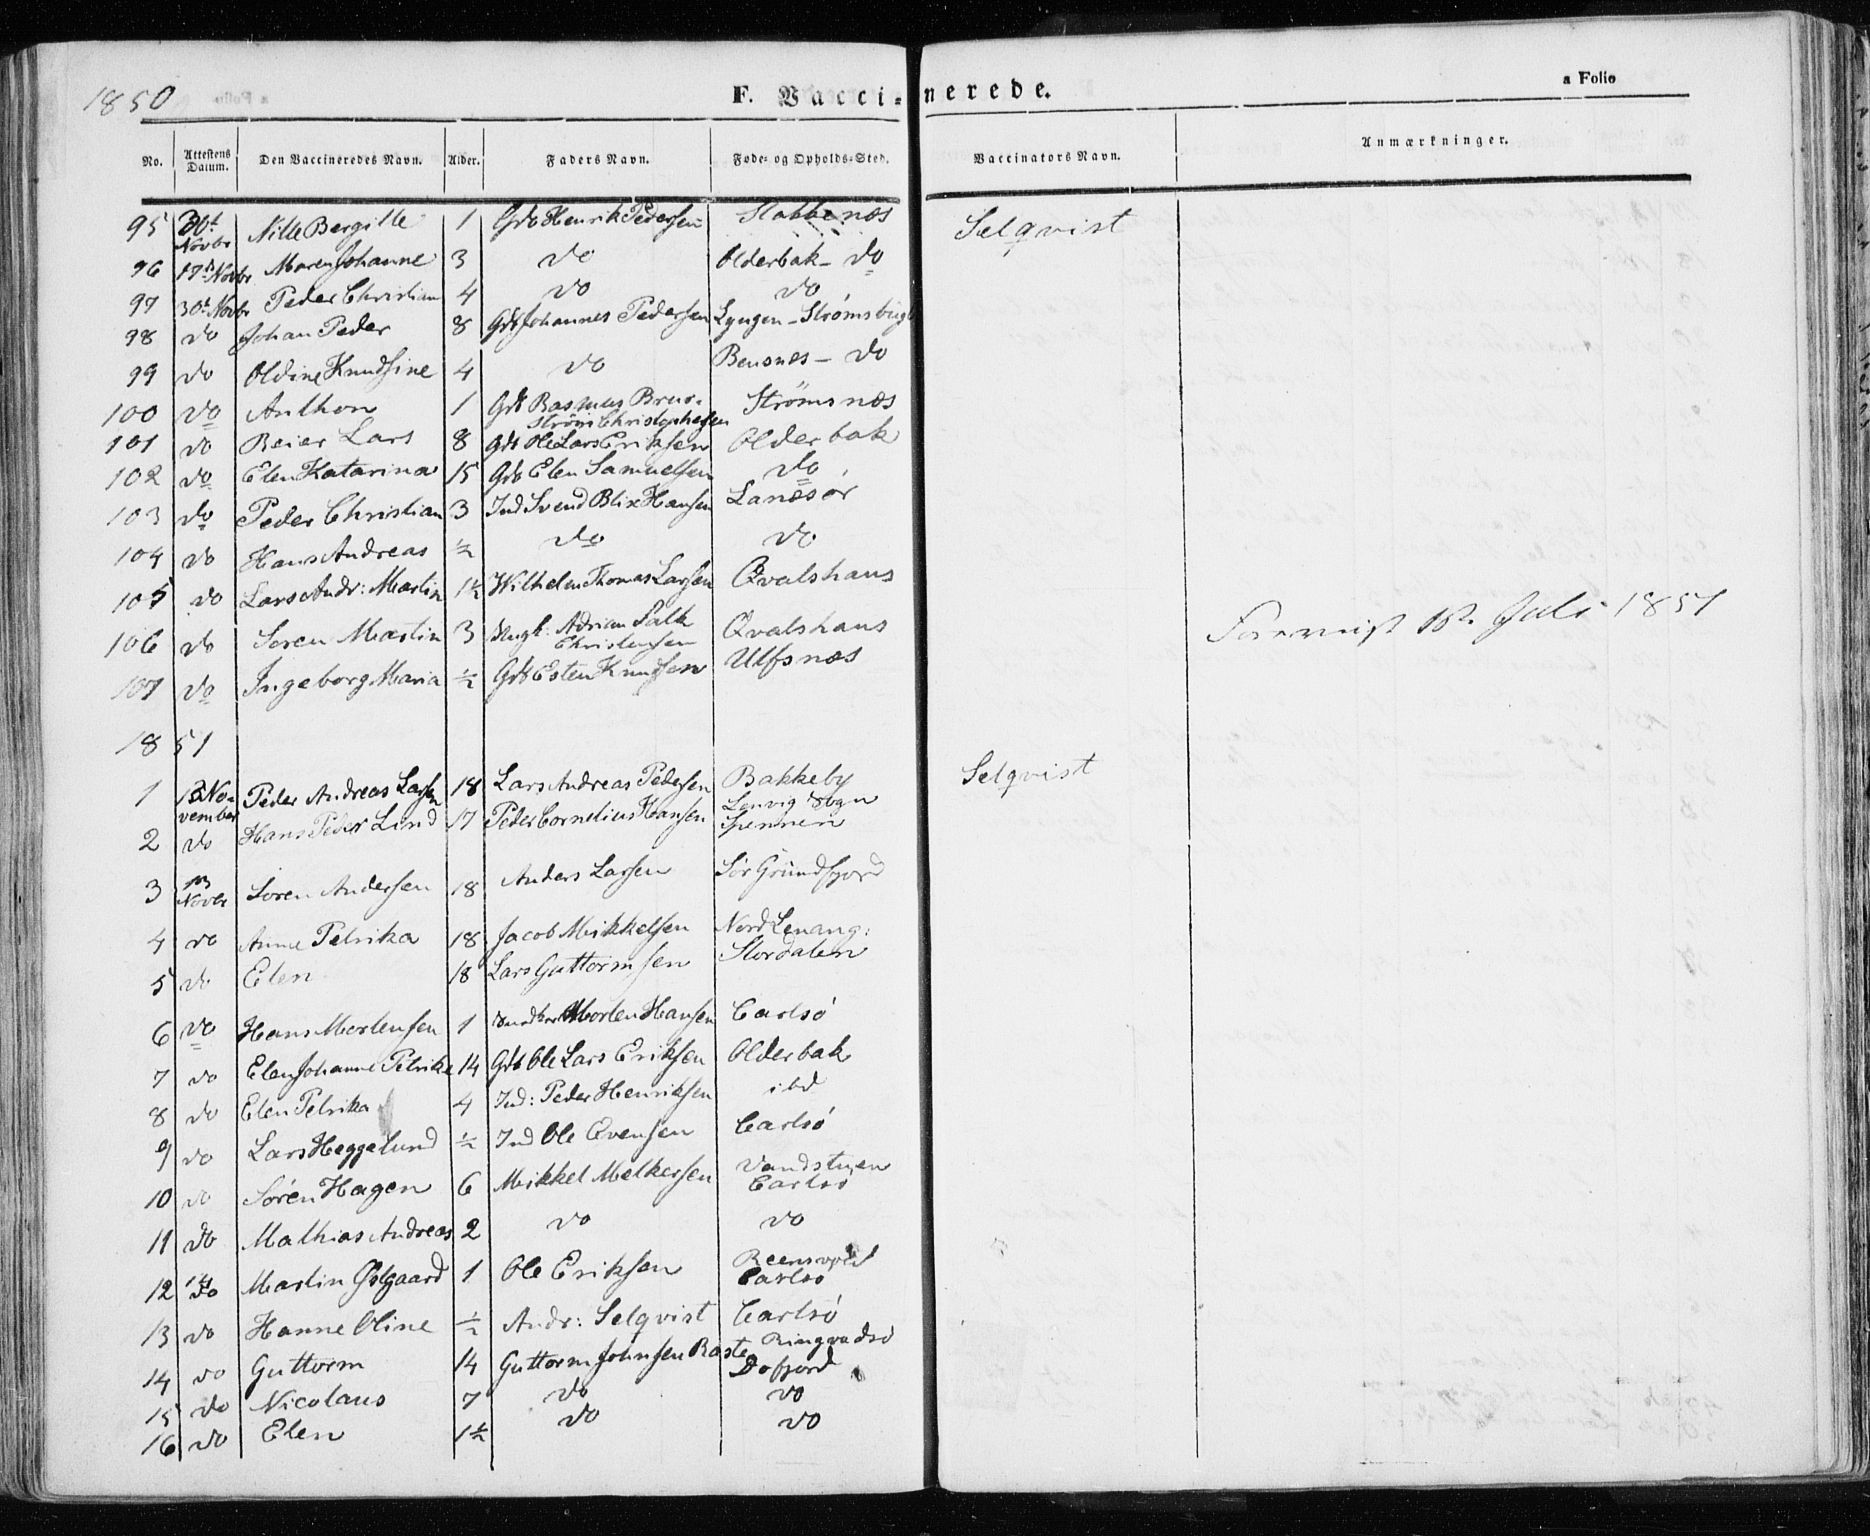 1850
F. Vaccinerede.
a Folio
No. Attestens Datum. Den Vaccineredes Navn. Alder. Faders Navn. Føde- og Opholds-Sted. Vaccinators Navn. Anmærkninger.
95 30t Novbr Nille Bergitte 1 Gdb Henrik Pedersen Stabbenæs Selqvist
96 17t Novbr Maren Johanne 3 do Olderbak - do
97 30t Novbr Peder Christian 4 do do
98 do Johan Peder 8 Gdb Johannes Pedersen Lyngen - Strømsbugt
99 do Oldine Knudsine 4 do Bensnes - do
100 do Anthon 1 Gdb Rasmus Brurstrøm Christophersen Strømsnæs
101 do Beier Lars 8 Gdb Ole Lars Eriksen Olderbak
102 do Elen Katarina 15 Gdb Elen Samuelsen do
103 do Peder Christian 3 Ind Svend Blix Hansen Lanæsør
104 do Hans Andreas ½ do do
105 do Lars Andr: Martin 1½ Wilhelm Thomas Larsen Qvalshaus
106 do Søren Martin 3 Ungk: Adrian Falk Christensen Qvalshaus
107 do Ingeborg Maria ½ Gdb Esten Knudsen Ulfsnæs
Juli 1851
1851
1 13 November Peder Andreas Larsen 18 Lars Andreas Pedersen Bakkeby Selqvist
2 do Hans Peder Lind 17 Peder Cornelius Hansen Lenvig Sogn Spennen
3 13 Novbr Søren Andersen 18 Anders Larsen Sør Grundfjord
4 do Anne Petrika 18 Jacob Mikkelsen Nord Lenang:
5 do Elen 18 Lars Guttormsen Stordalen
6 do Hans Mortensen 1 Morten Hansen Carlsø
7 do Elen Johanne Petrika 14 Gdb Ole Lars Eriksen Olderbak
8 do Elen Petrika 4 Ind: Peder Henriksen ibd
9 do Lars Heggelund ½ Ind Ole Evensen Carlsø
10 do Søren Hagen 6 Mikkel Melkersen Vandstuen Carlsø
11 do Mathias Andreas 2 do do
12 14 do Martin Østgaard 1 Ole Eriksen Reensvold Carlsø
13 do Hanne Oline ½ Andr: Selqvist Carlsø
14 do Guttorm 14 Guttorm Johnsen Baste Ringvadsø Dofjord
15 do Nicolaus 7 do do
16 do Elen 1½ do do